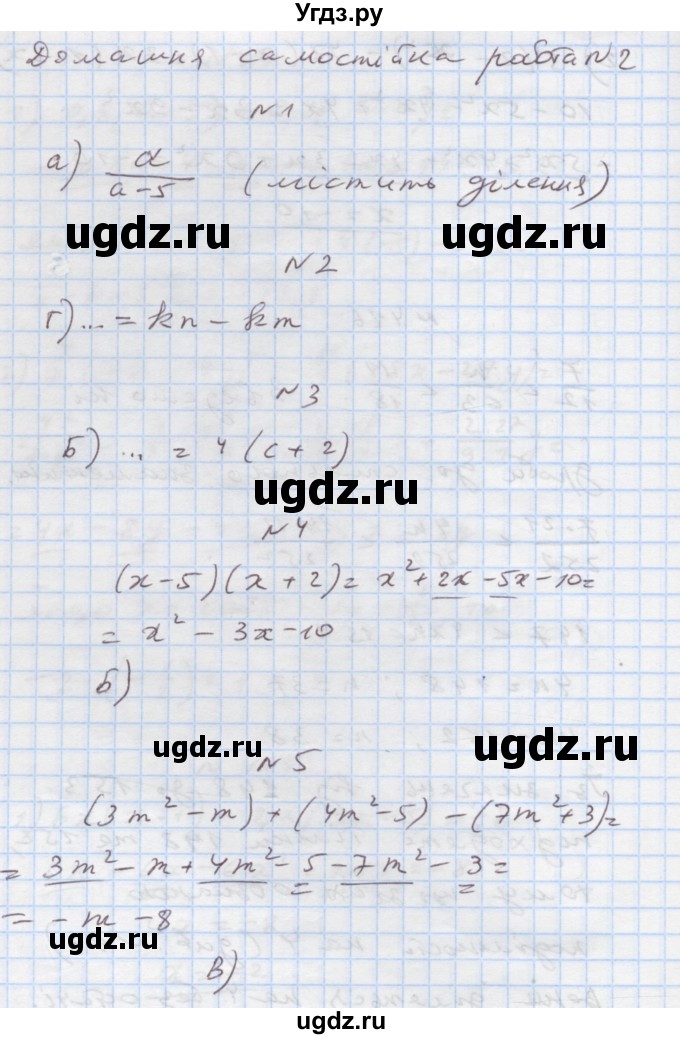 Угдз.ру
Домашня самостійна робота №2
№1
а) a/(a-5) (містить ділення)
ugdz.ru ugdz.ru
№2
г) ... = kn - km
№3
Б) ... = 4(c + 2)
ugdz.ru
№4
(x-5)(x+2) = x² + 2x - 5x - 10 =
= x² - 3x - 10
б)
ugdz.ru ugdz.ru
№5
(3m² - m) + (4m² - 5) - (7m² + 3) =
= 3m² - m + 4m² - 5 - 7m² - 3 =
= - m - 8
ugdz.ru
В)
ugdz.ru